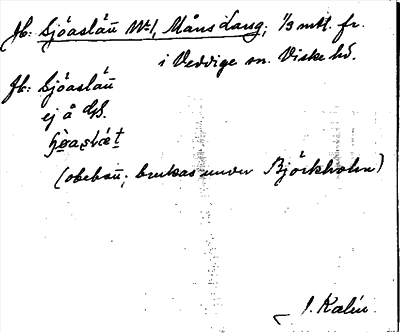 Jb: Sjöaslätt Nº1, Måns Lang; 1/3 mtl. fr.
i Veddige sn. Viske hd.
Jb: Sjöaslätt
ej å GS.
(obebott; brukas under Björkholm)
J. Kalén